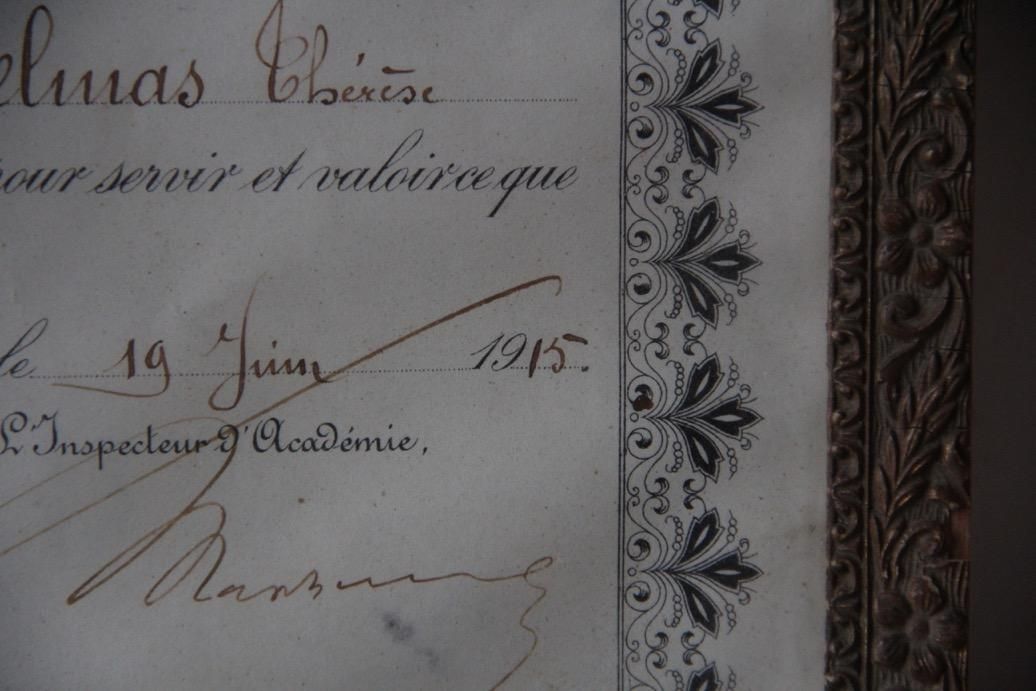 elmas Thérèse
pour servir et valoir ce que
le 19 Juin 1915.
L'Inspecteur d'Académie,